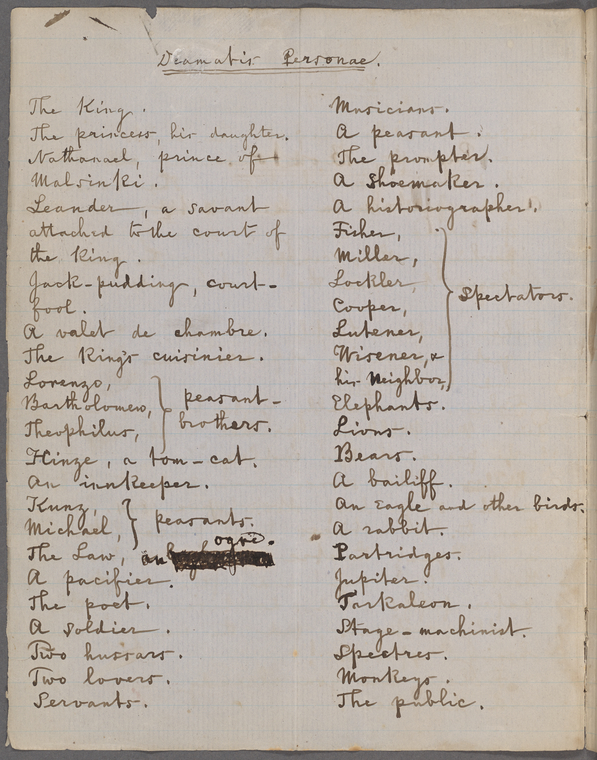 Dramatis Personae.
The King.
The princess, his daughter.
Nathanael, prince of
Malsinki.
Leander, a savant
attached to the court of
the king.
Jack-pudding, court-
fool.
A valet de chambre.
The King's cuisinier.
Lorenzo,
Bartholomew,
Theophilus,
peasant-
brothers.
Hinze, a tom-cat.
An innkeeper.
Kunz,
Michael,
peasants.
The Law, an ogre.
A pacifier.
The poet.
A soldier.
Two hussars.
Two lovers.
Servants.
Musicians.
A peasant.
The prompter.
A shoemaker.
A historiographer.
Fisher,
Miller,
Lockler,
Cooper,
Lutener,
Wisener, &
his Neighbor,
Spectators.
Elephants.
Lions.
Bears.
A bailiff.
An Eagle and other birds.
A rabbit.
Partridges.
Jupiter.
Tarkaleon.
Stage-machinist.
Spectres.
Monkeys.
The public.